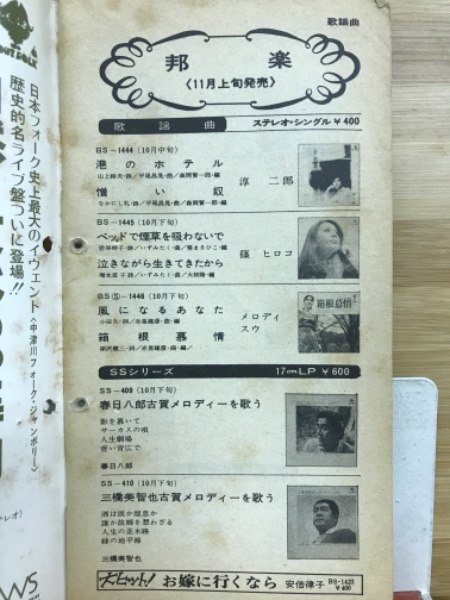 歌謡曲
邦楽
〈11月上旬発売〉
歌謡曲 ステレオ・シングル ¥400
BS−1444 (10月中旬)
港のホテル
山上路夫・詩／平尾昌晃・曲／森岡賢一郎・編
憎い奴
なかにし礼・詩／平尾昌晃・曲／森岡賢一郎・編
淳 二郎
BS−1445 (10月下旬)
ベッドで煙草を吸わないで
岩谷時子・詩／いずみたく・曲
泣きながら生きてきたから
いずみたく・曲／大柿隆・編
篠 ヒロコ
BSⓈ−1446 (10月下旬)
風になるあなた
箱根慕情
メロディ
スウ
箱根慕情
SSシリーズ 17cmLP ¥600
SS−409 (10月下旬)
春日八郎古賀メロディーを歌う
影を慕いて
サーカスの唄
人生劇場
青い背広で
春日八郎
SS−410 (10月下旬)
三橋美智也古賀メロディーを歌う
酒は涙か溜息か
誰か故郷を想わざる
人生の並木路
緑の地平線
三橋美智也
大ヒット! お嫁に行くなら 安倍律子 BS-1423
¥400
日本フォーク史上最大のイヴェント〈中津川フォーク・ジャンボリー〉
歴史的名ライブ盤ついに登場!!
WS